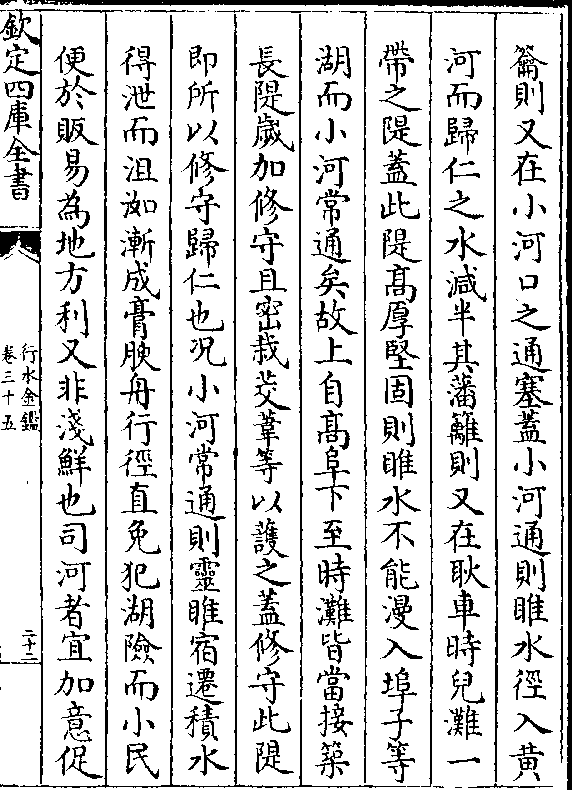 籥則又在小河口之通塞蓋小河通則睢水徑入黄
河而歸仁之水減半其藩籬則又在耿車時兒灘一
帶之隄蓋此隄髙厚堅固則睢水不能漫入埠子等
湖而小河常通矣故上自髙阜下至時灘皆當接築
長隄歲加修守且密栽茭葦等以護之蓋修守此隄
即所以修守歸仁也况小河常通則靈睢宿遷積水
得泄而沮洳漸成膏腴舟行徑直免犯湖險而小民
便於販易為地方利又非淺鮮也司河者宜加意促
欽定四庫全書
行水金鑑
卷三十五
二十二